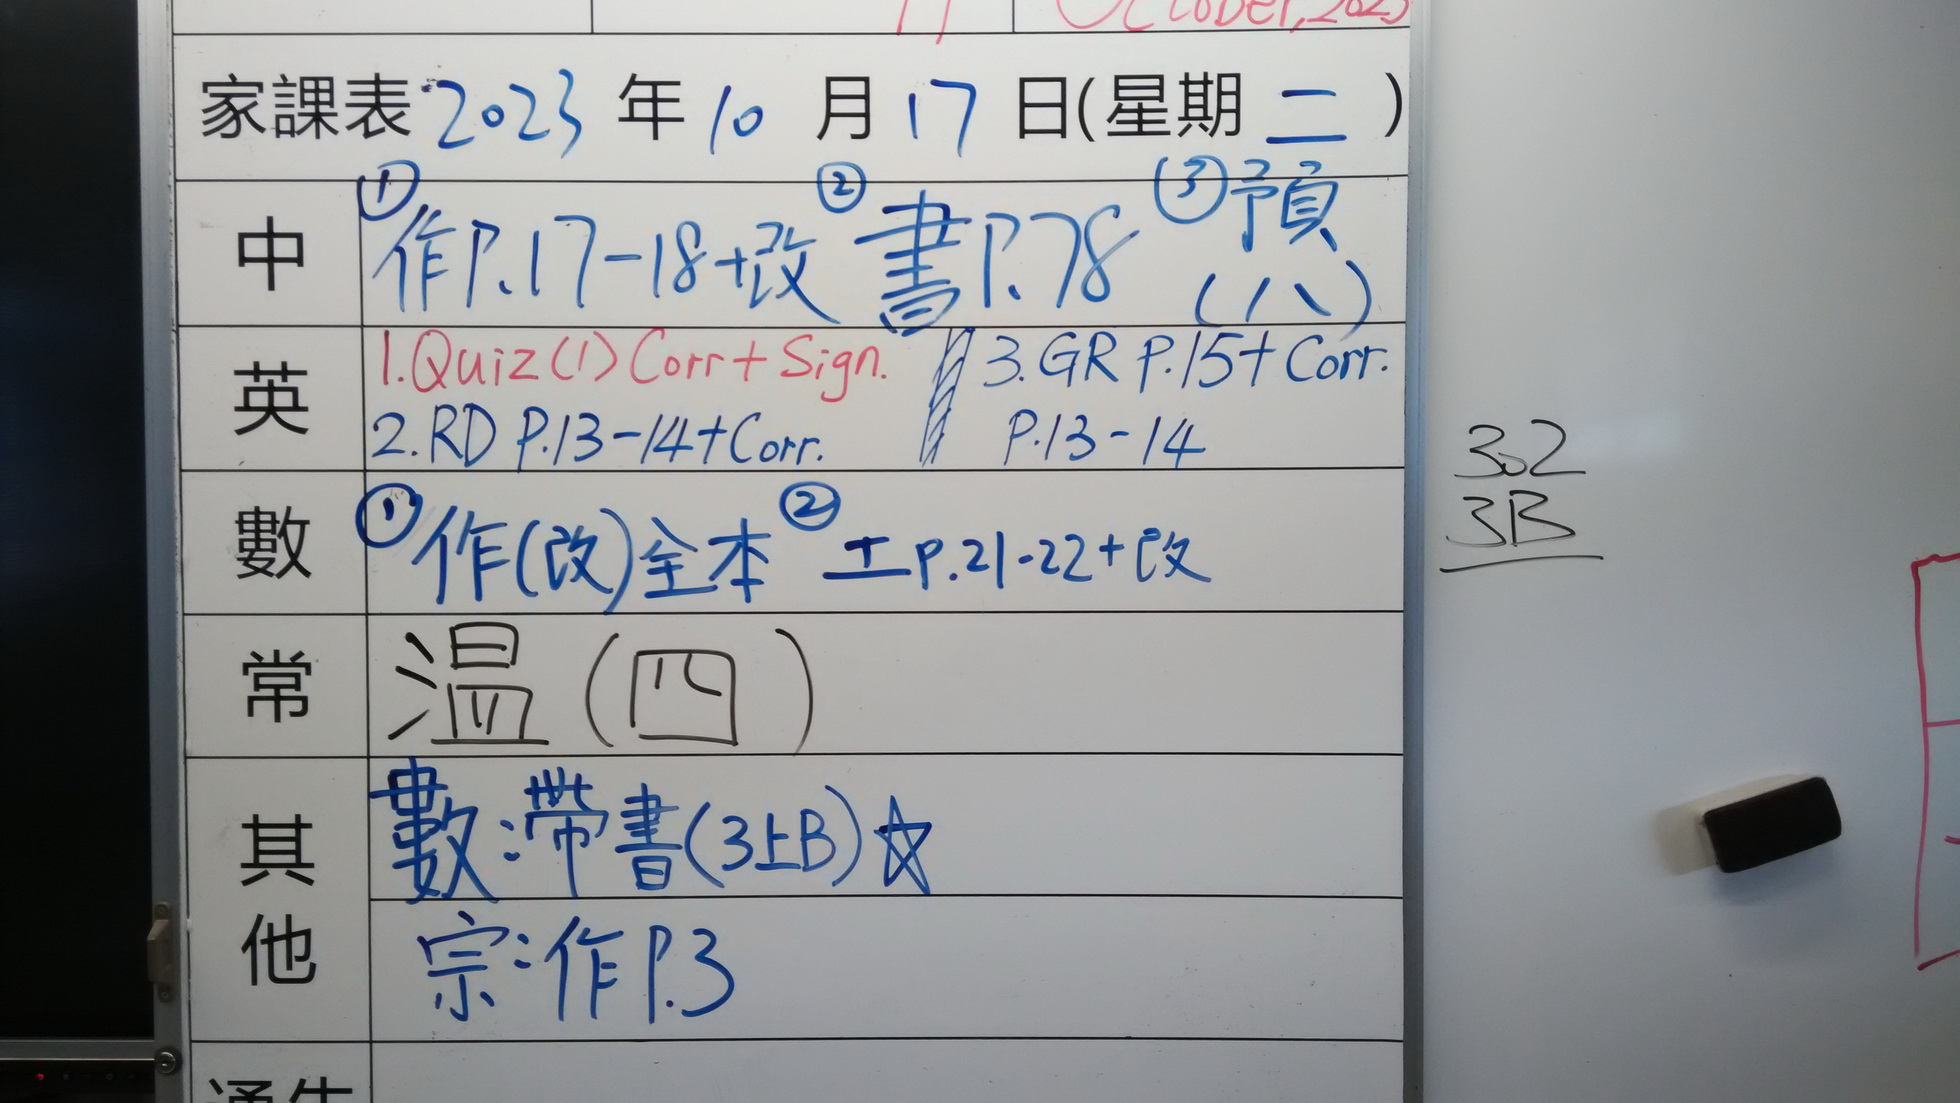 October, 2023
家課表 2023 年 10 月 17 日(星期 二 )
中 ① 作P.17-18+改 ② 書P.78 ③ 預(八)
英 1.Quiz(1) Corr+Sign. 3.GR P.15+Corr.
2.RD P.13-14+Corr. P.13-14
數 ① 作(改)全本 ② 工P.21-22+改
常 温(四)
其他 數:帶書(3上B)☆
宗:作P.3
通告
302
3B